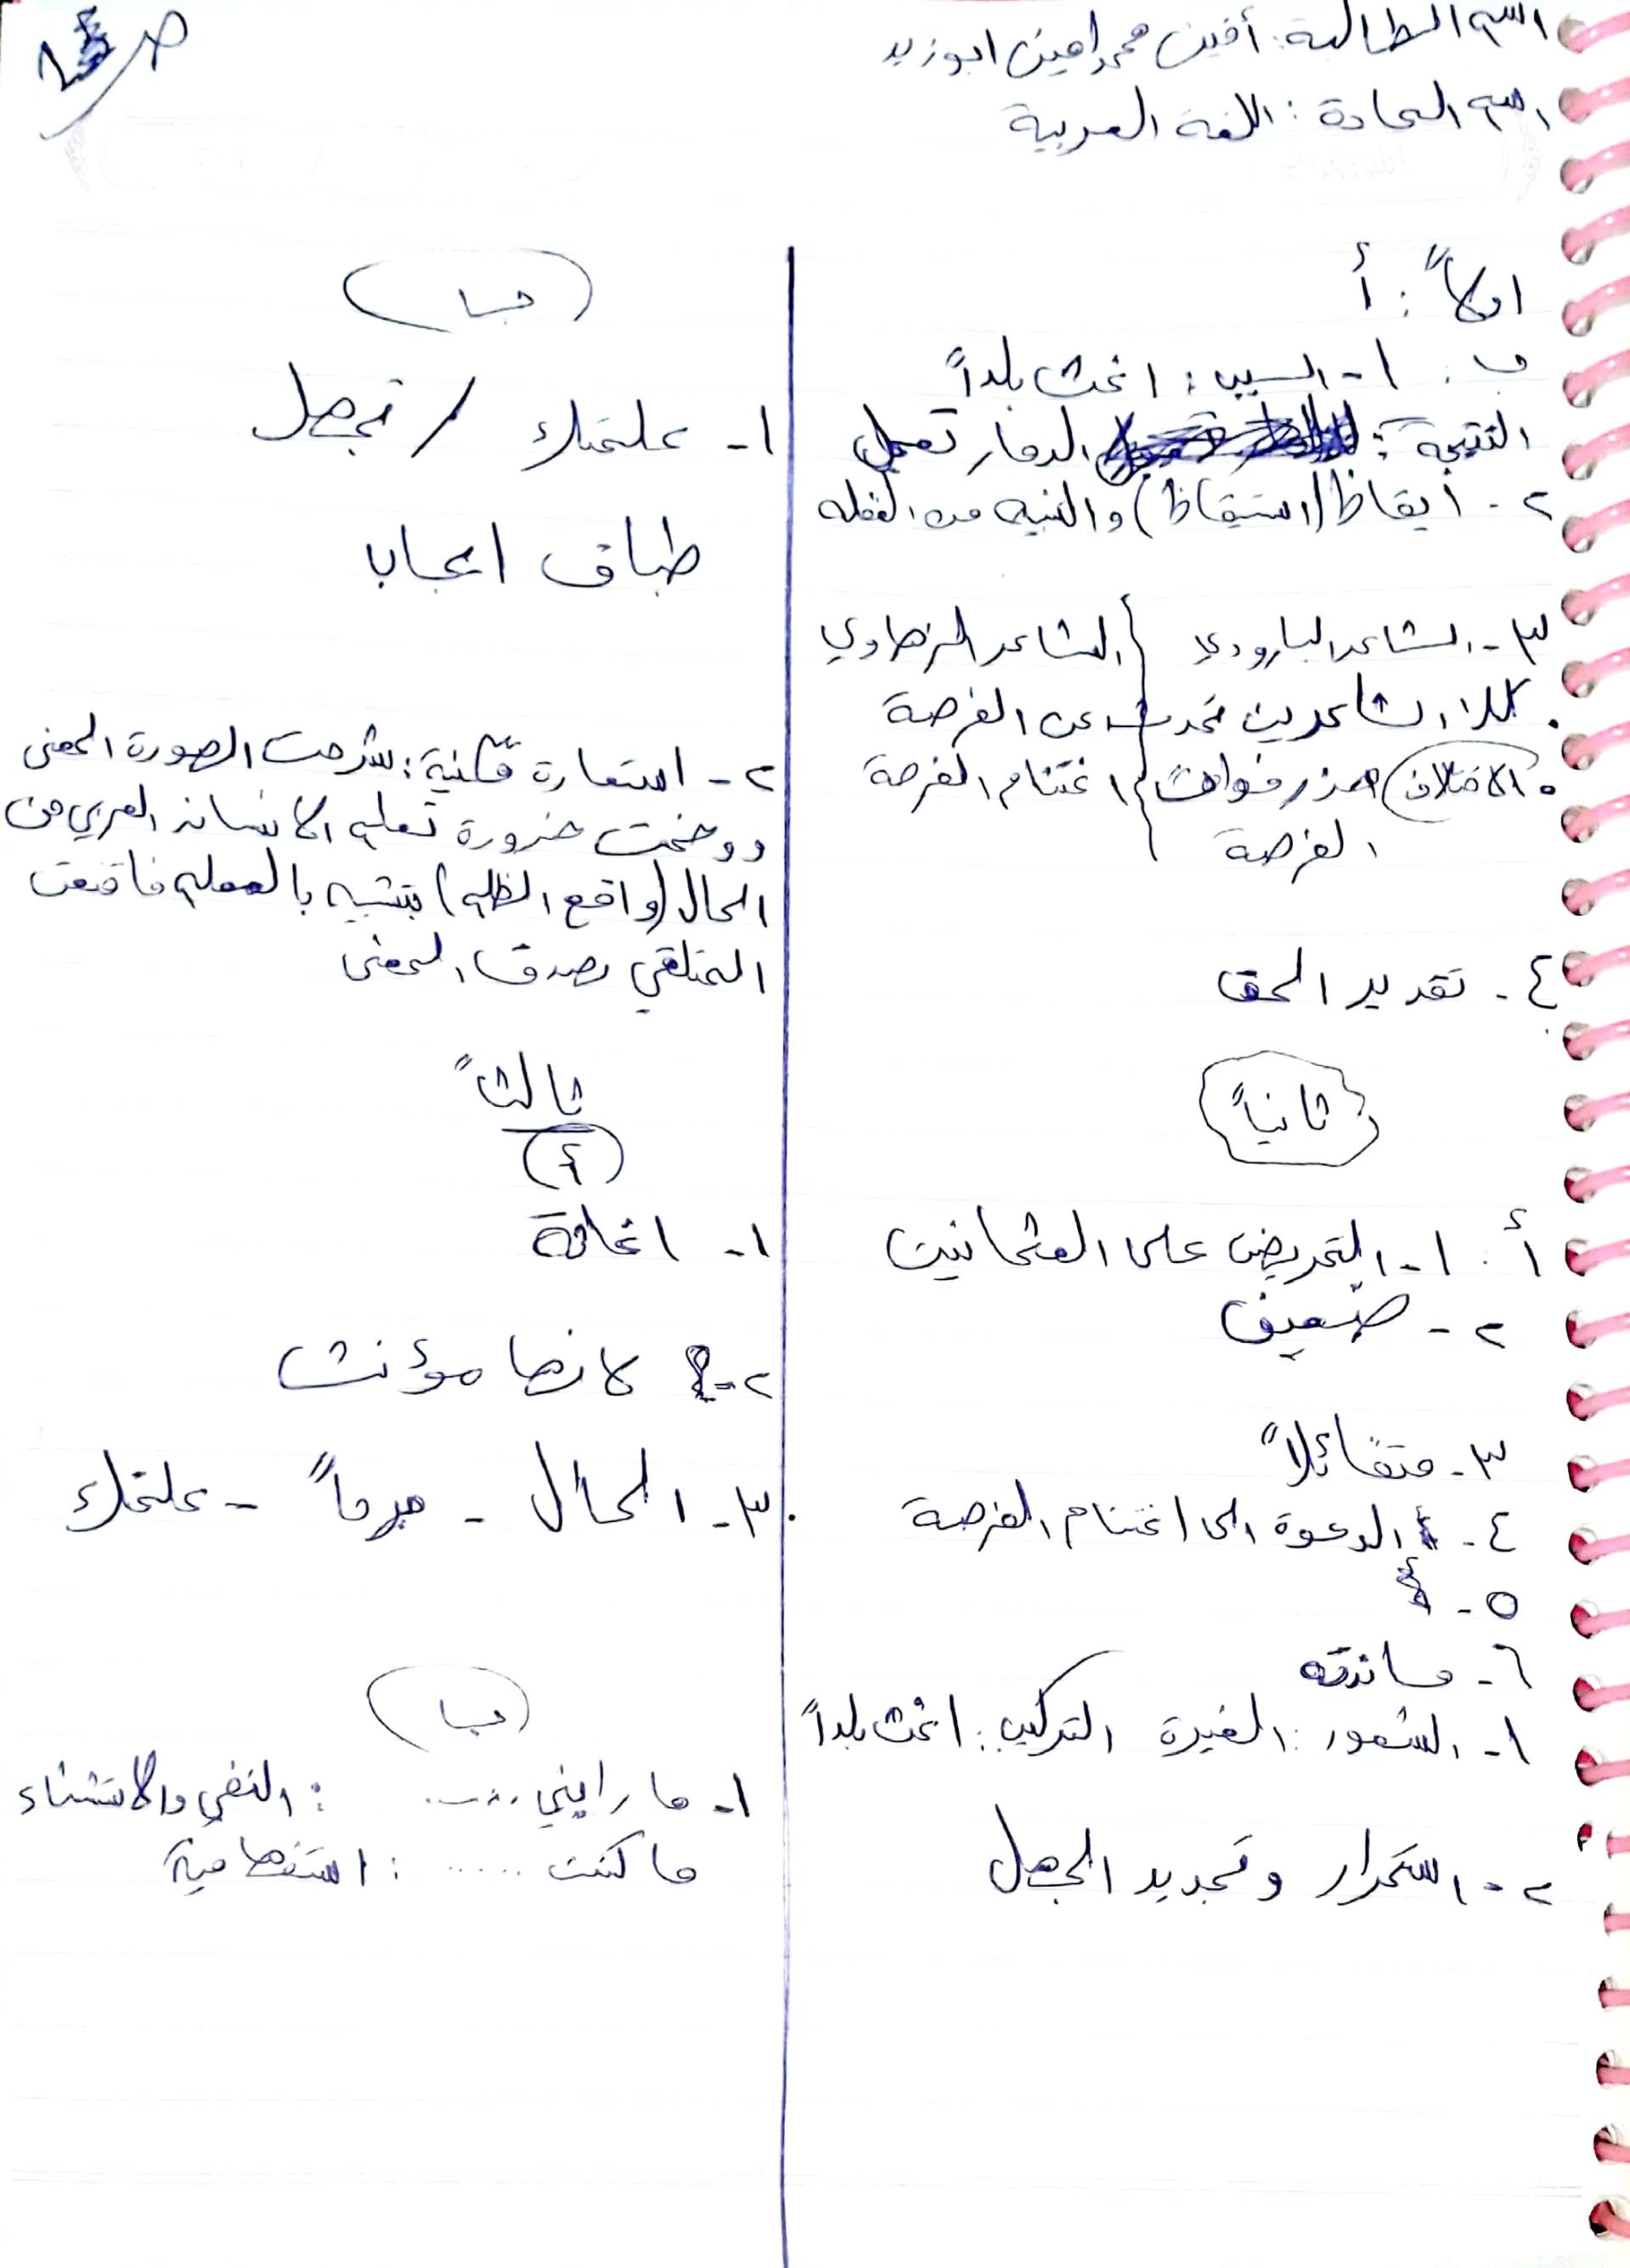 اسم الطالبة: أفين محمد امين ابو زيد
ص ١
اسم المادة: اللغة العربية
اولاً: أ
ب: ١- السبب: اغث بلداً
النتيجة: الدمار تعجل
٢- أيقاظ (استيقاظ) والتنبيه من الغفله
٣- الشاعر البارودي
الشاعر الزهاوي
• كلا الشاعرين تحدث عن الفرصة
• الاختلاف حذر فوات اغتنام الفرصة
الفرصة
٤- تقدير الحق
ثانياً
أ: ١- التحريض على العثمانيين
٢- ضعيف
٣- متفائلاً
٤- الدعوة الى اغتنام الفرصة
٥- أ
٦- ساندته
١- الشعور: الغيرة التركيب: اغث بلداً
٢- استمرار وتجديد الجهل
(ب)
١- علمتك / تجهل
طباق ايجاب
٢- استعارة مكنية: شرحت الصورة المعنى
ووضحت ضرورة تعلم الانسان العربي من
الحال (واقع الظلم) بتشبيه بالمعلم فاقنعت
المتلقي بصدق المعنى
ثالثاً
(أ)
١- اغاثة
٢- لانها مؤنث
٣- الحال - يوماً - علمتك
(ب)
١- ما رايني ..... : النفي والاستثناء
ما كنت ..... : استفهامية